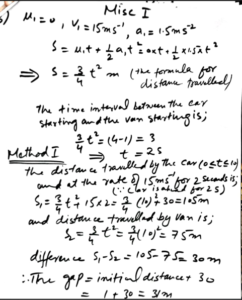 Misc I
5) μ₁=0, V₁=15ms⁻¹, a₁=1.5ms⁻²
S=μ₁t+½a₁t²=0xt+½x1.5xt²
⇒ S=¾t² m (the formula for distance travelled)
The time interval between the car
starting and the van starting is;
¾t²=(4-1)=3
⇒ t=2s
Method I
the distance travelled by the car (0≤t≤10)
and at the rate of 15ms⁻¹ for 2 seconds is;
(∵ Car is ahead for 2s)
S₁=¾t²+15x2=¾(10)²+30=105m
and distance travelled by van is;
S₂=¾t²=¾(10)²=75m
difference S₁-S₂=105-75=30m
∴The gap=initial distance+30
=1+30=31m